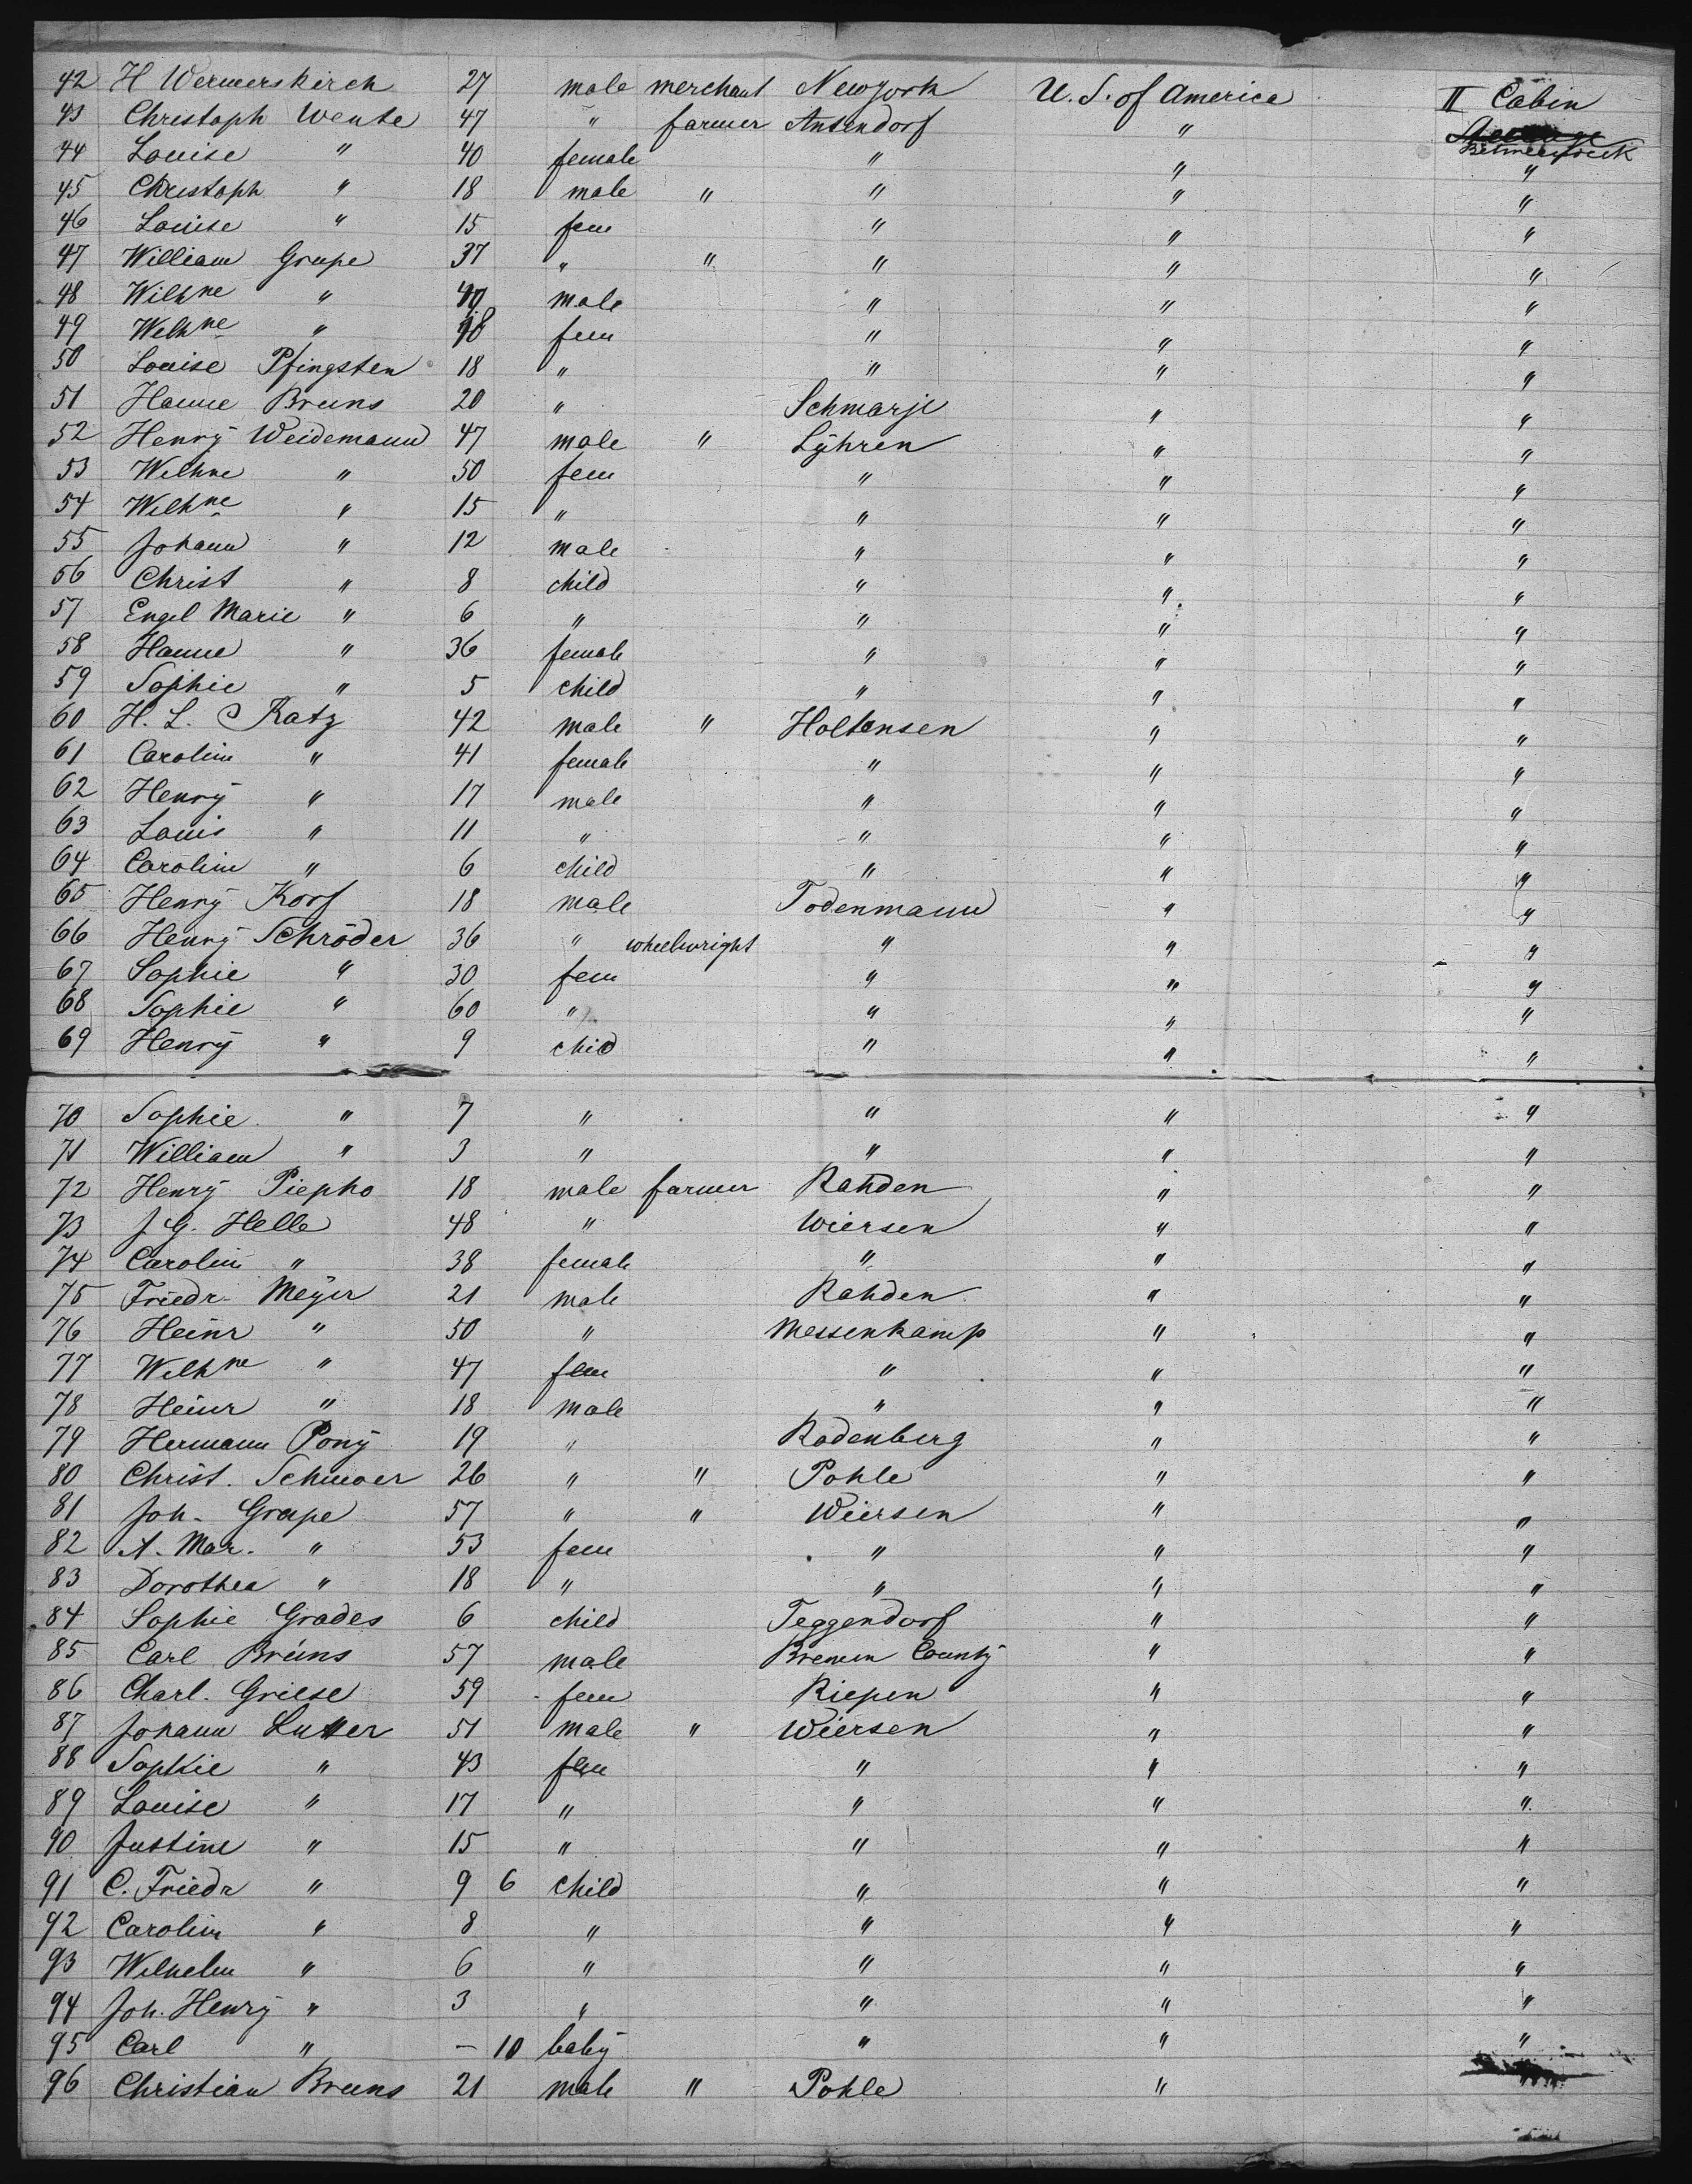 42 H Wermerskirch 27 male merchant Newyork U. S. of America II Cabin
43 Christoph Wente 47 " farmer Antendorf " Betweendeck
44 Louise " 40 female " " "
45 Christoph " 18 male " " " "
46 Louise " 15 fem " " "
47 William Grupe 37 " " " " "
48 Wilhne " 40 male " " "
49 Wilhne " 18 fem " " "
50 Louise Pfingsten 18 " " " "
51 Hanne Bruns 20 " Schmarje " "
52 Henry Weidemann 47 male " Lyhren " "
53 Wilhne " 50 fem " " "
54 Wilhne " 15 " " " "
55 Johann " 12 male " " "
56 Christ " 8 child " " "
57 Engel Marie " 6 " " " "
58 Hanne " 36 female " " "
59 Sophie " 5 child " " "
60 H. L. Katz 42 male " Holtensen " "
61 Carolin " 41 female " " "
62 Henry " 17 male " " "
63 Louis " 11 " " " "
64 Carolin " 6 child " " "
65 Henry Korf 18 male Todenmann " "
66 Henry Schröder 36 " wheelwright " " "
67 Sophie " 30 fem " " "
68 Sophie " 60 " " " "
69 Henry " 9 chid " " "
70 Sophie " 7 " " " "
71 William " 3 " " " "
72 Henry Piepho 18 male farmer Rahden " "
73 J G. Helle 48 " Wiersen " "
74 Carolin " 38 female " " "
75 Friedr. Meyer 21 male Rahden " "
76 Heinr " 50 " Messenkamp " "
77 Wilhne " 47 fem " " "
78 Heinr " 18 male " " "
79 Hermann Pony 19 " Rodenberg " "
80 Christ. Schwoer 26 " " Pohle " "
81 Joh. Grupe 57 " " Wiersen " "
82 A. Mar. " 53 fem " " "
83 Dorothea " 18 " " " "
84 Sophie Grades 6 child Teggendorf " "
85 Carl Bruns 57 male Bremen County " "
86 Charl. Griese 59 fem Riepen " "
87 Johann Lutter 51 male " Wiersen " "
88 Sophie " 43 fem " " "
89 Louise " 17 " " " "
90 Justine " 15 " " " "
91 C. Friedr " 9 6 child " " "
92 Carolin " 8 " " " "
93 Wilhelm " 6 " " " "
94 Joh. Henry " 3 " " " "
95 Carl " – 10 baby " " "
96 Christian Bruns 21 male " Pohle "